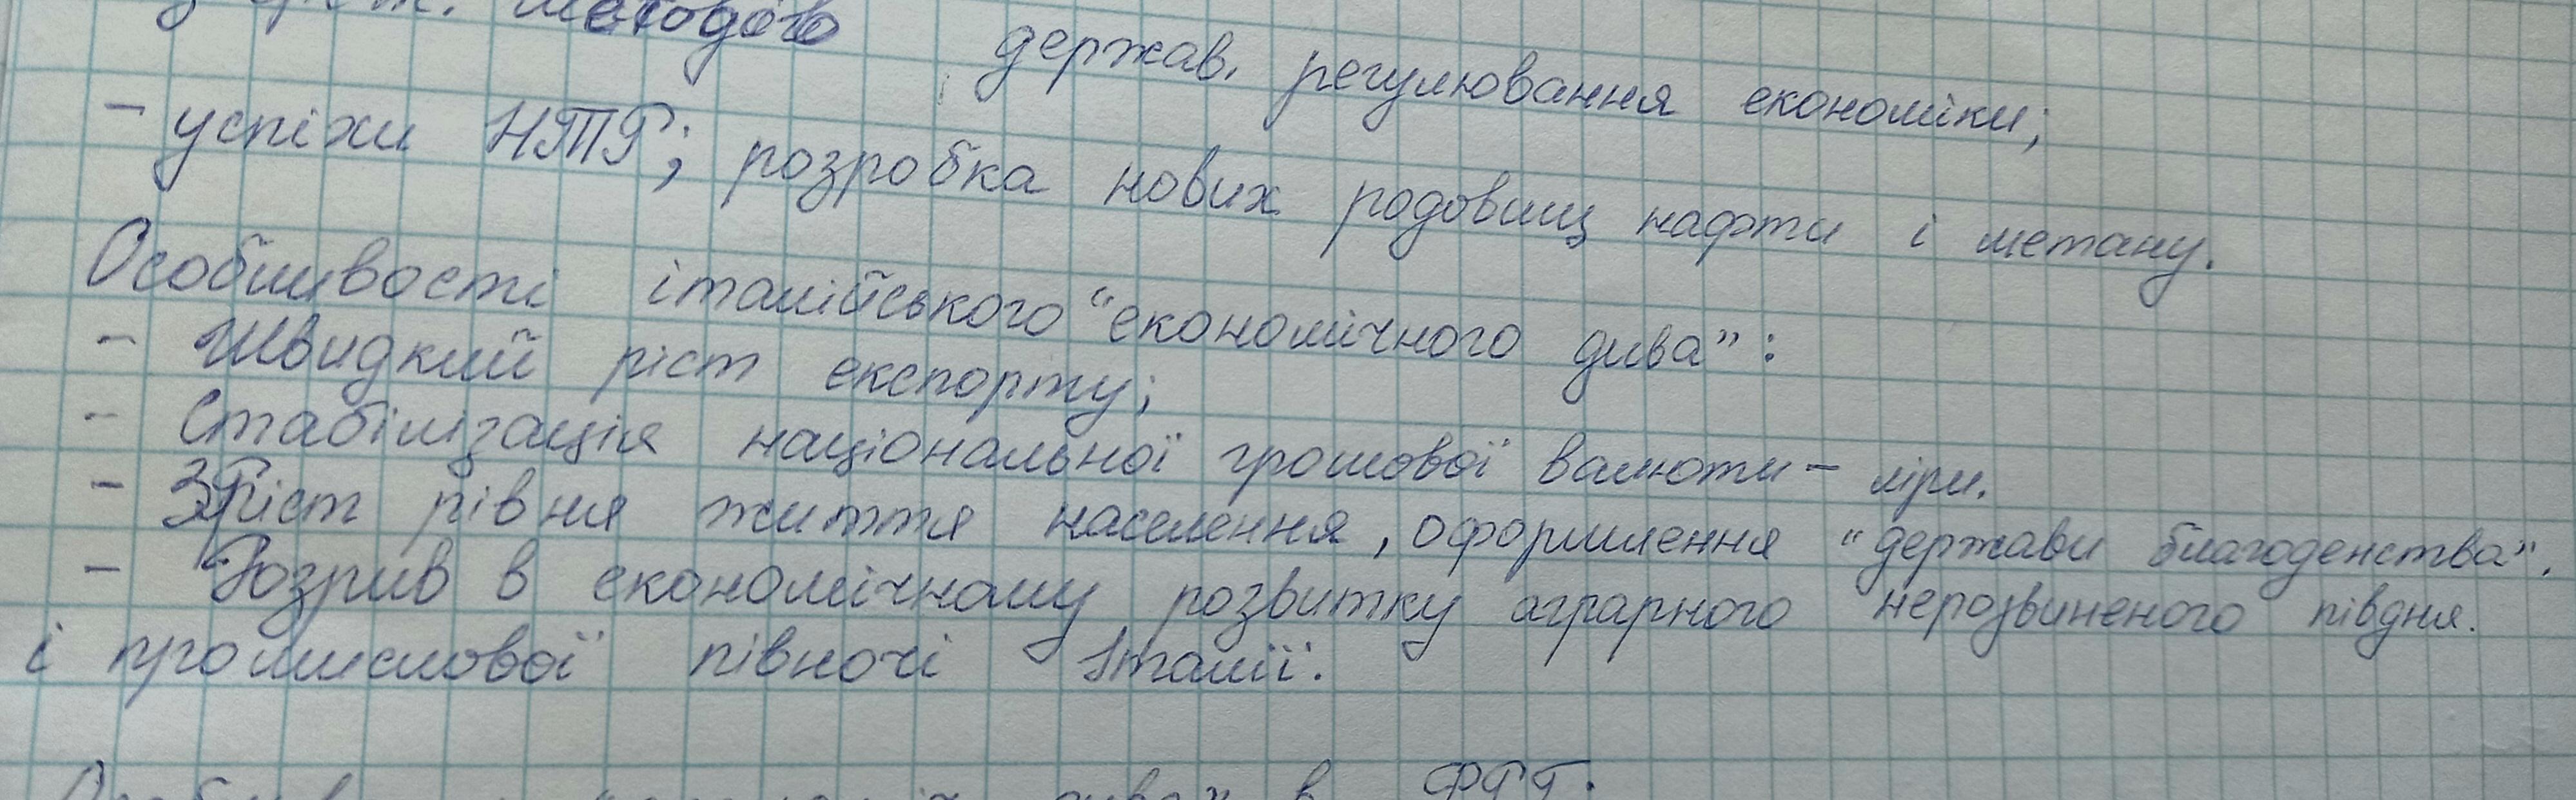 методів держав. регулювання економіки;
- успіхи НТР; розробка нових родовищ нафти і метану.
Особливості італійського "економічного дива":
- Швидкий ріст експорту;
- Стабілізація національної грошової валюти - ліри.
- Зріст рівня життя населення, оформлення "держави благоденства".
- Розрив в економічному розвитку аграрного нерозвиненого півдня.
і промислової півночі Італії.
в ФРГ.